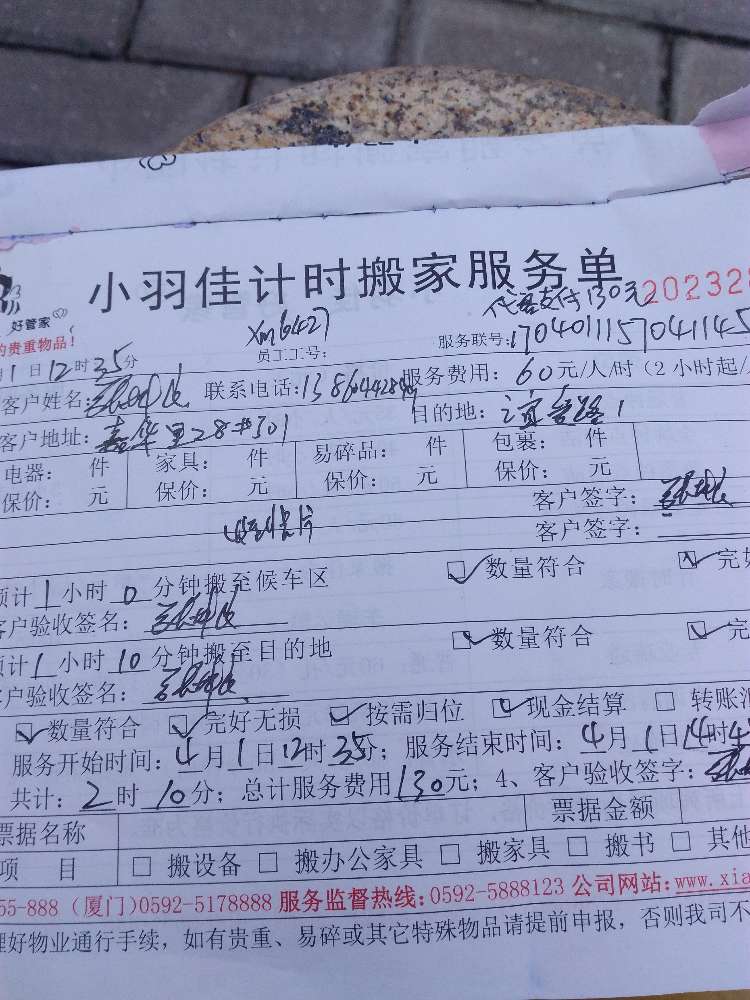 小羽佳计时搬家服务单
好管家
代客支付130元
202328
的贵重物品！
xm6427
员工工号：
服务联号：1704011157041145
月1日12时35分
客户姓名： 联系电话： 服务费用：60元/人/时（2小时起/
客户地址：嘉华里28#301 目的地：
电器： 件 家具： 件 易碎品： 件 包裹： 件
保价： 元 保价： 元 保价： 元 保价： 元
客户签字：
客户签字：
预计1小时0分钟搬至候车区 数量符合 完好
客户验收签名：
预计1小时10分钟搬至目的地 数量符合 完
客户验收签名：
数量符合 完好无损 按需归位 现金结算 转账汇
服务开始时间：4月1日12时35分；服务结束时间：4月1日14时4
共计：2时10分；总计服务费用130元；4、客户验收签字：
票据名称 票据金额
项 目 搬设备 搬办公家具 搬家具 搬书 其他
55-888（厦门）0592-5178888 服务监督热线：0592-5888123 公司网站：www.xia
理好物业通行手续，如有贵重、易碎或其它特殊物品请提前申报，否则我司不